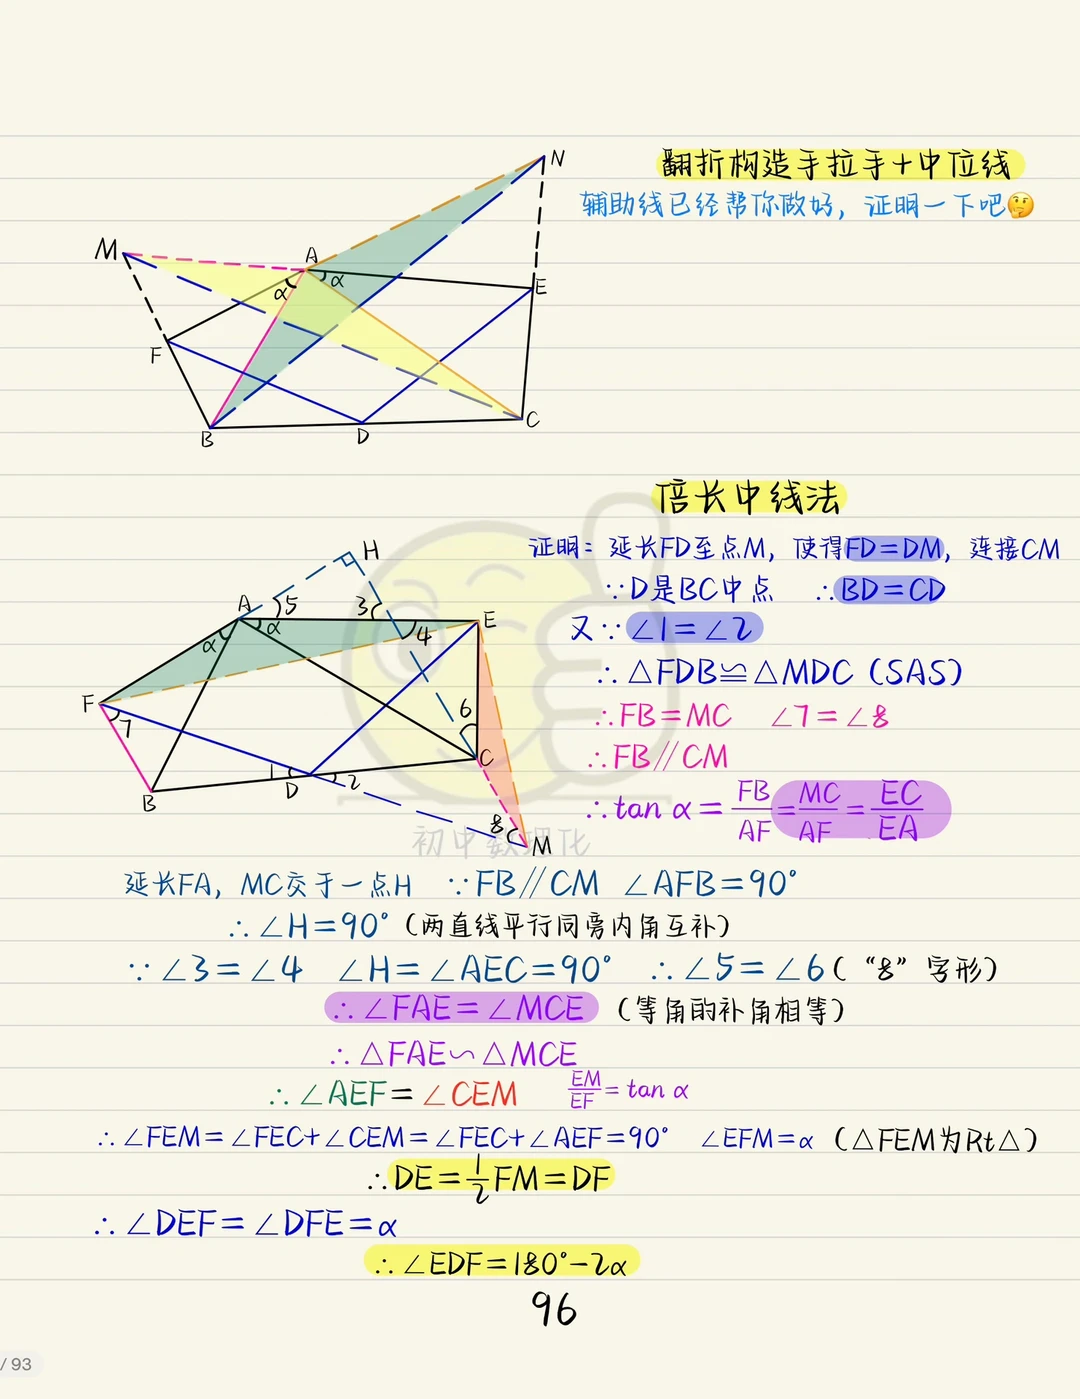 翻折构造手拉手+中位线
辅助线已经帮你做好，证明一下吧🤔
N
M
A
α
α
E
F
B
D
C
倍长中线法
证明：延长FD至点M，使得FD=DM，连接CM
∵D是BC中点 ∴BD=CD
又∵∠1=∠2
∴△FDB≌△MDC（SAS）
∴FB=MC ∠7=∠8
∴FB∥CM
∴tan α=FB/AF=MC/AF=EC/EA
H
A
5
3
E
α
α
4
F
7
6
C
1
2
B
D
8
M
初中数理化
延长FA，MC交于一点H ∵FB∥CM ∠AFB=90°
∴∠H=90°（两直线平行同旁内角互补）
∵∠3=∠4 ∠H=∠AEC=90° ∴∠5=∠6（“8”字形）
∴∠FAE=∠MCE（等角的补角相等）
∴△FAE∽△MCE
∴∠AEF=∠CEM EM/EF=tan α
∴∠FEM=∠FEC+∠CEM=∠FEC+∠AEF=90° ∠EFM=α（△FEM为Rt△）
∴DE=1/2FM=DF
∴∠DEF=∠DFE=α
∴∠EDF=180°-2α
96
/ 93